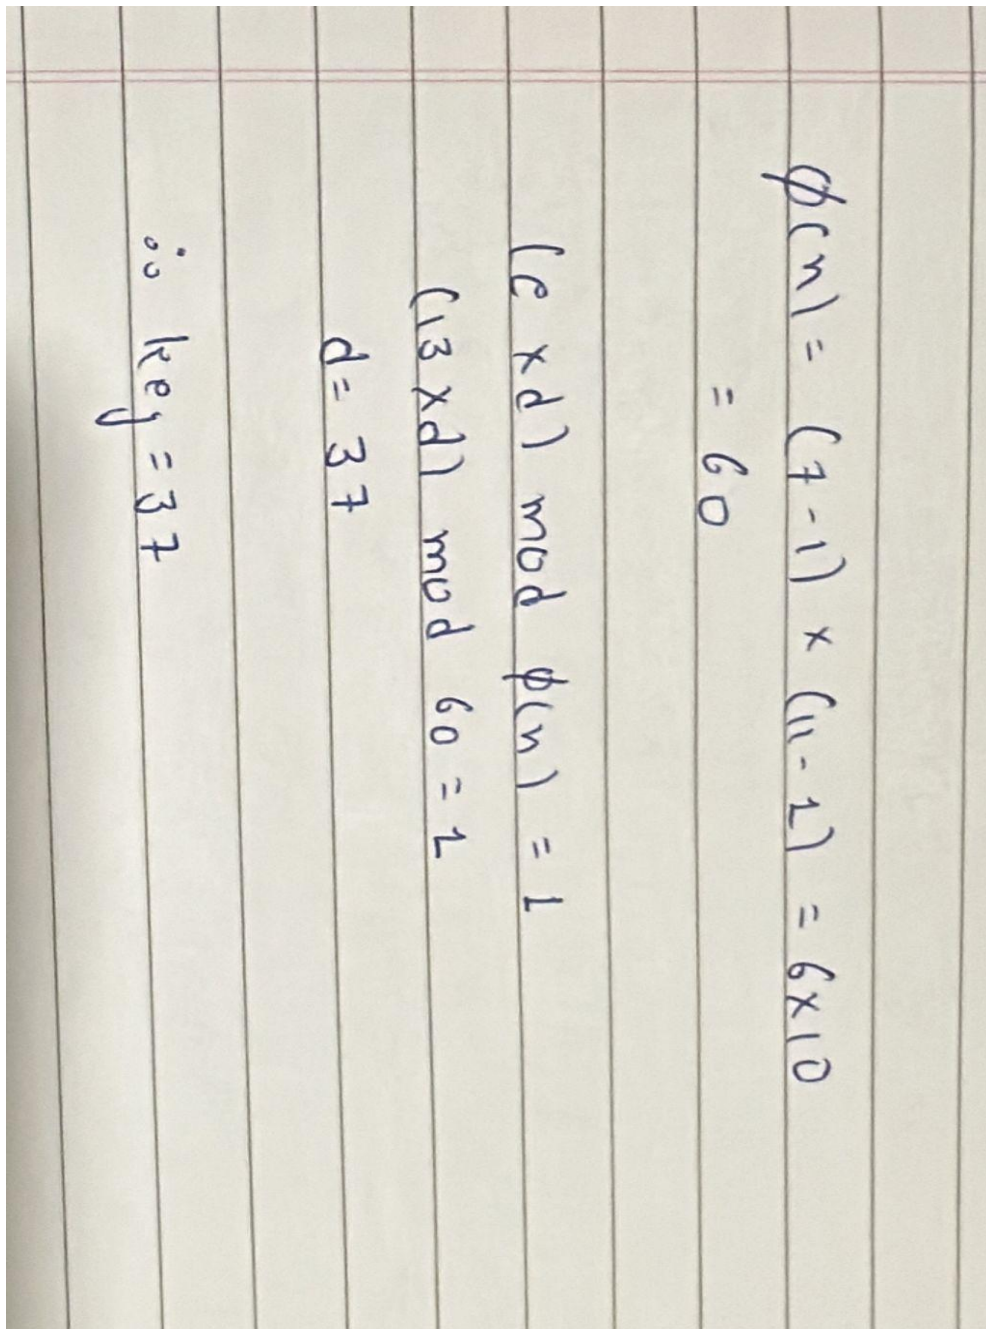 ϕ(n) = (7-1) × (11-1) = 6×10
= 60
(e × d) mod ϕ(n) = 1
(13 × d) mod 60 = 1
d = 37
∴ key = 37